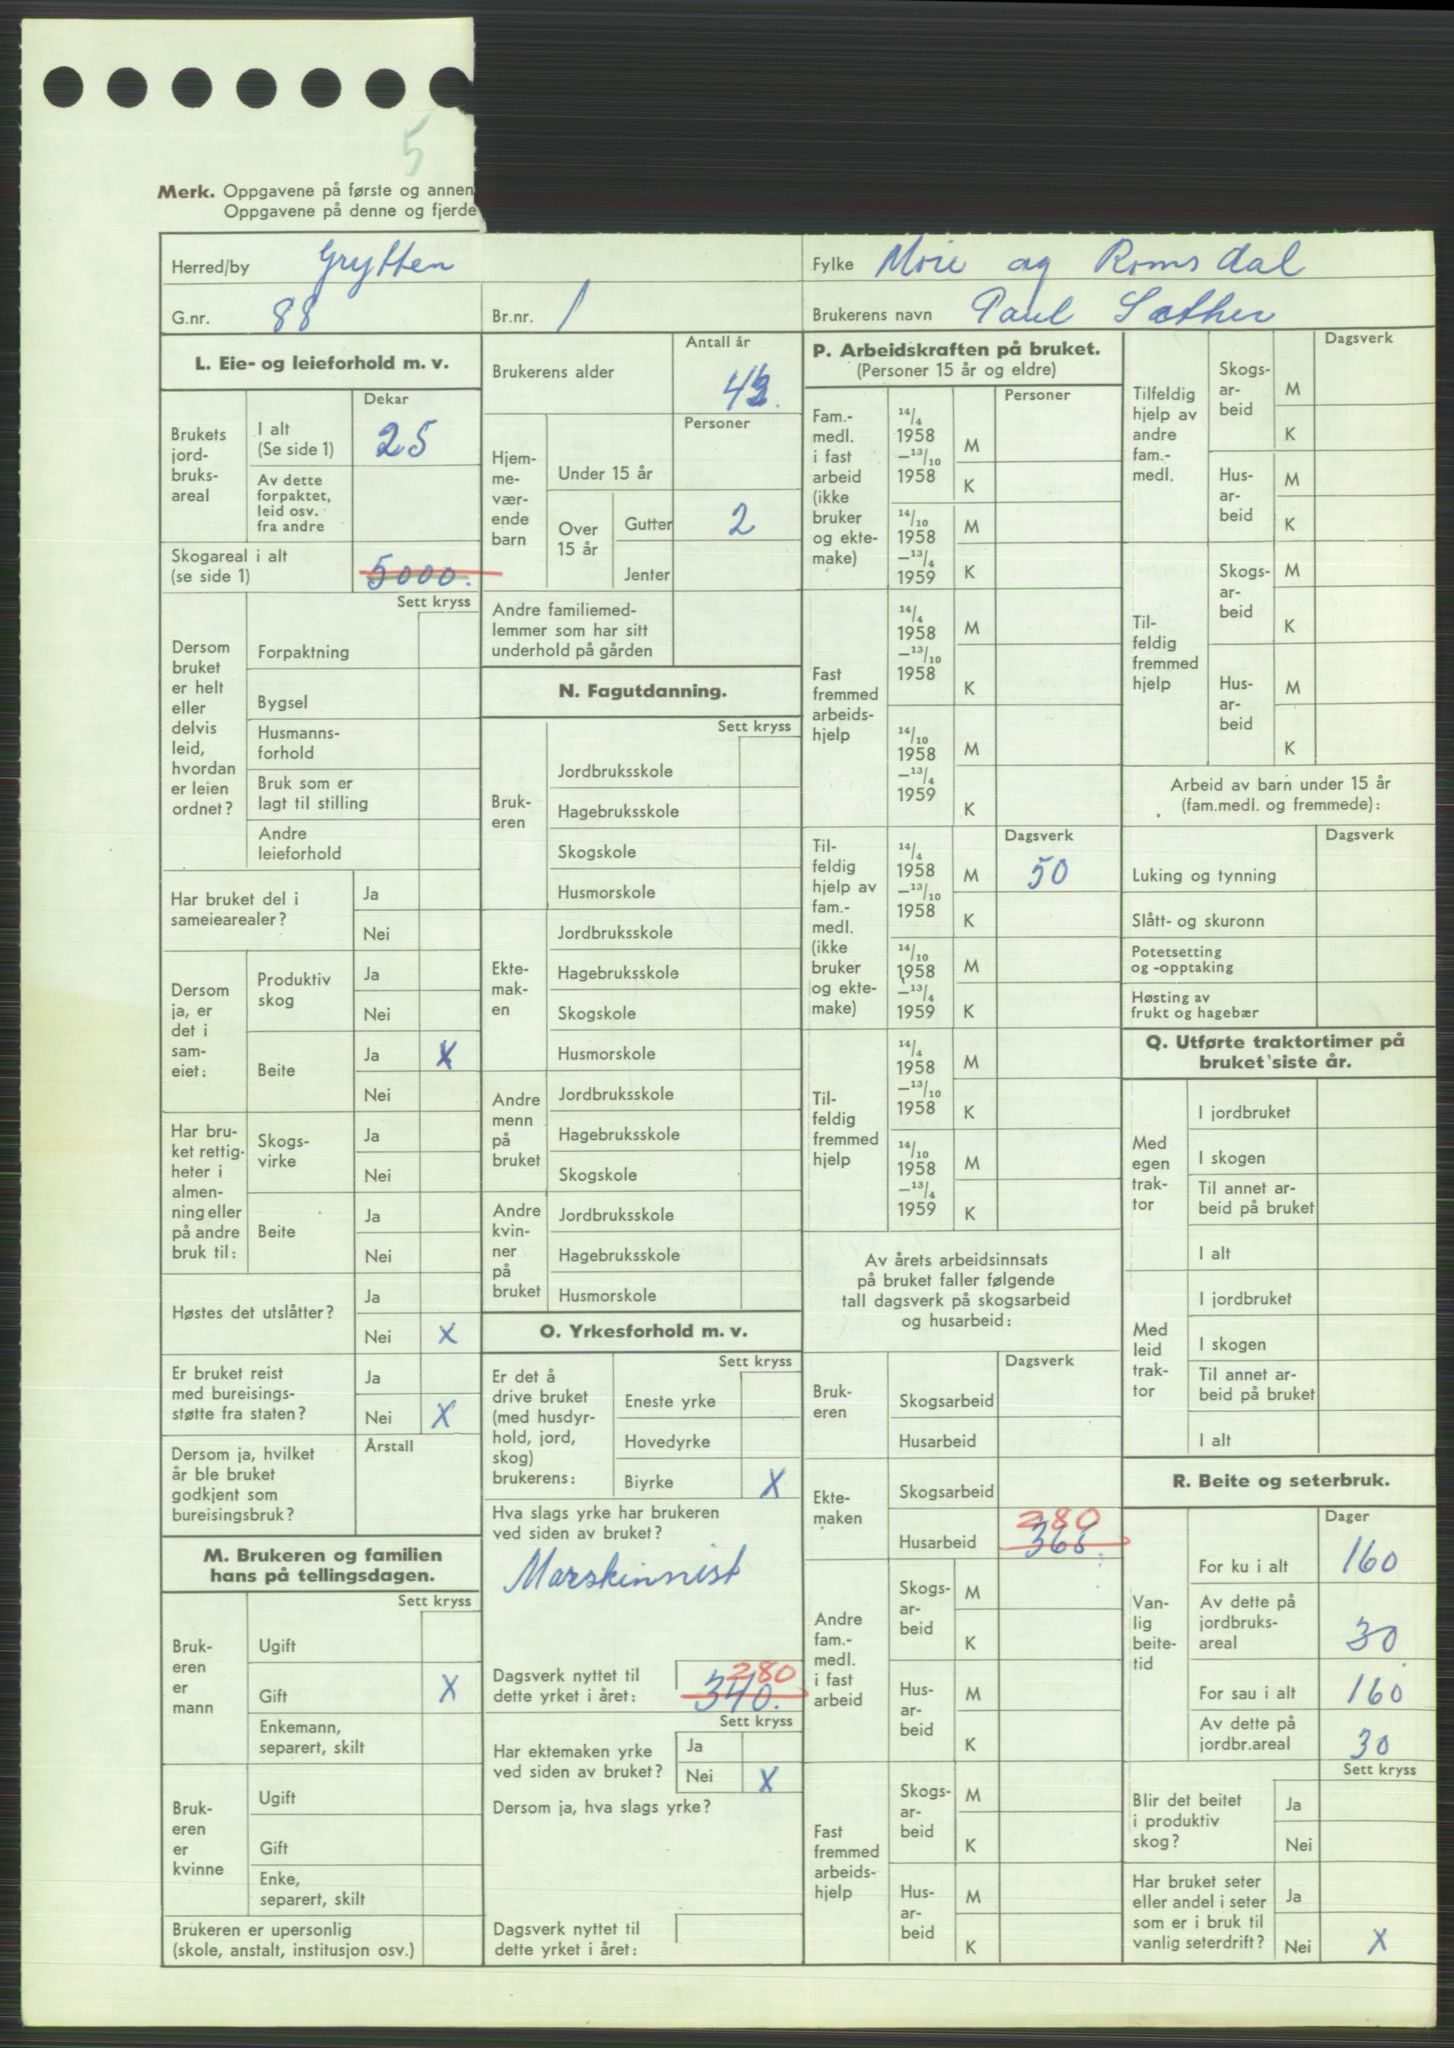 5
Merk. Oppgavene på første og annen
Oppgavene på denne og fjerde
Herred/by Grytten
Fylke Möre og Romsdal
G.nr. 88
Br.nr. 1
Brukerens navn Paul Sæther
L. Eie- og leieforhold m. v.
Dekar
Brukets jord-
bruks-
areal
I alt
(Se side 1) 25
Av dette
forpaktet,
leid osv.
fra andre
Skogareal i alt
(se side 1) 5000.
Sett kryss
Dersom
bruket
er helt
eller
delvis
leid,
hvordan
er leien
ordnet?
Forpaktning
Bygsel
Husmanns-
forhold
Bruk som er
lagt til stilling
Andre
leieforhold
Har bruket del i
sameiearealer?
Ja
Nei
Dersom
ja, er
det i
sam-
eiet:
Produktiv
skog
Ja
Nei
Beite
Ja X
Nei
Har bru-
ket rettig-
heter i
almen-
ning eller
på andre
bruk til:
Skogs-
virke
Ja
Nei
Beite
Ja
Nei
Høstes det utslåtter?
Ja
Nei X
Er bruket reist
med bureisings-
støtte fra staten?
Ja
Nei X
Dersom ja, hvilket
år ble bruket
godkjent som
bureisingsbruk?
Årstall
M. Brukeren og familien
hans på tellingsdagen.
Sett kryss
Bruk-
eren
er
mann
Ugift
Gift X
Enkemann,
separert, skilt
Bruk-
eren
er
kvinne
Ugift
Gift
Enke,
separert, skilt
Brukeren er upersonlig
(skole, anstalt, institusjon osv.)
Antall år
Brukerens alder
Personer
Hjem-
me-
vær-
ende
barn
Under 15 år
Over
15 år
Gutter 2
Jenter
Andre familiemed-
lemmer som har sitt
underhold på gården
N. Fagutdanning.
Sett kryss
Bruk-
eren
Jordbruksskole
Hagebruksskole
Skogskole
Husmorskole
Ekte-
mak-
en
Jordbruksskole
Hagebruksskole
Skogskole
Husmorskole
Andre
menn
på
bruket
Jordbruksskole
Hagebruksskole
Skogskole
Andre
kvin-
ner
på
bruket
Jordbruksskole
Hagebruksskole
Husmorskole
O. Yrkesforhold m. v.
Sett kryss
Er det å
drive bruket
(med husdyr-
hold, jord,
skog)
brukerens:
Eneste yrke
Hovedyrke
Biyrke X
Hva slags yrke har brukeren
ved siden av bruket?
Marskinnist
Dagsverk nyttet til
dette yrket i året: 340. 280
Sett kryss
Har ektemaken yrke
ved siden av bruket?
Ja
Nei X
Dersom ja, hva slags yrke?
Dagsverk nyttet til
dette yrket i året:
P. Arbeidskraften på bruket.
(Personer 15 år og eldre)
Personer
Fam.-
medl.
i fast
arbeid
(ikke
bruker
og ekte-
make)
14/4
1958
—13/10
1958
M
K
14/10
1958
—13/4
1959
M
K
Fast
fremmed
arbeids-
hjelp
14/4
1958
—13/10
1958
M
K
14/10
1958
—13/4
1959
M
K
Dagsverk
Til-
feldig
hjelp av
fam.-
medl.
(ikke
bruker
og ekte-
make)
14/4
1958
—13/10
1958
M 50
K
14/10
1958
—13/4
1959
M
K
Til-
feldig
fremmed
hjelp
14/4
1958
—13/10
1958
M
K
14/10
1958
—13/4
1959
M
K
Av årets arbeidsinnsats
på bruket faller følgende
tall dagsverk på skogsarbeid
og husarbeid:
Dagsverk
Bruk-
eren
Skogsarbeid
Husarbeid
Ekte-
maken
Skogsarbeid
Husarbeid 365. 280
Andre
fam.-
medl.
i fast
arbeid
Skogs-
ar-
beid
M
K
Hus-
ar-
beid
M
K
Fast
fremmed
arbeids-
hjelp
Skogs-
ar-
beid
M
K
Hus-
ar-
beid
M
K
Dagsverk
Tilfeldig
hjelp av
andre
fam.-
medl.
Skogs-
ar-
beid
M
K
Hus-
ar-
beid
M
K
Til-
feldig
fremmed
hjelp
Skogs-
ar-
beid
M
K
Hus-
ar-
beid
M
K
Arbeid av barn under 15 år
(fam.medl. og fremmede):
Dagsverk
Luking og tynning
Slått- og skuronn
Potetsetting
og -opptaking
Høsting av
frukt og hagebær
Q. Utførte traktortimer på
bruket siste år.
Med
egen
trak-
tor
I jordbruket
I skogen
Til annet ar-
beid på bruket
I alt
Med
leid
trak-
tor
I jordbruket
I skogen
Til annet ar-
beid på bruket
I alt
R. Beite og seterbruk.
Dager
Van-
lig
beite-
tid
For ku i alt 160
Av dette på
jordbruks-
areal 30
For sau i alt 160
Av dette på
jordbr.areal 30
Sett kryss
Blir det beitet
i produktiv
skog?
Ja
Nei
Har bruket seter
eller andel i seter
som er i bruk til
vanlig seterdrift?
Ja
Nei X